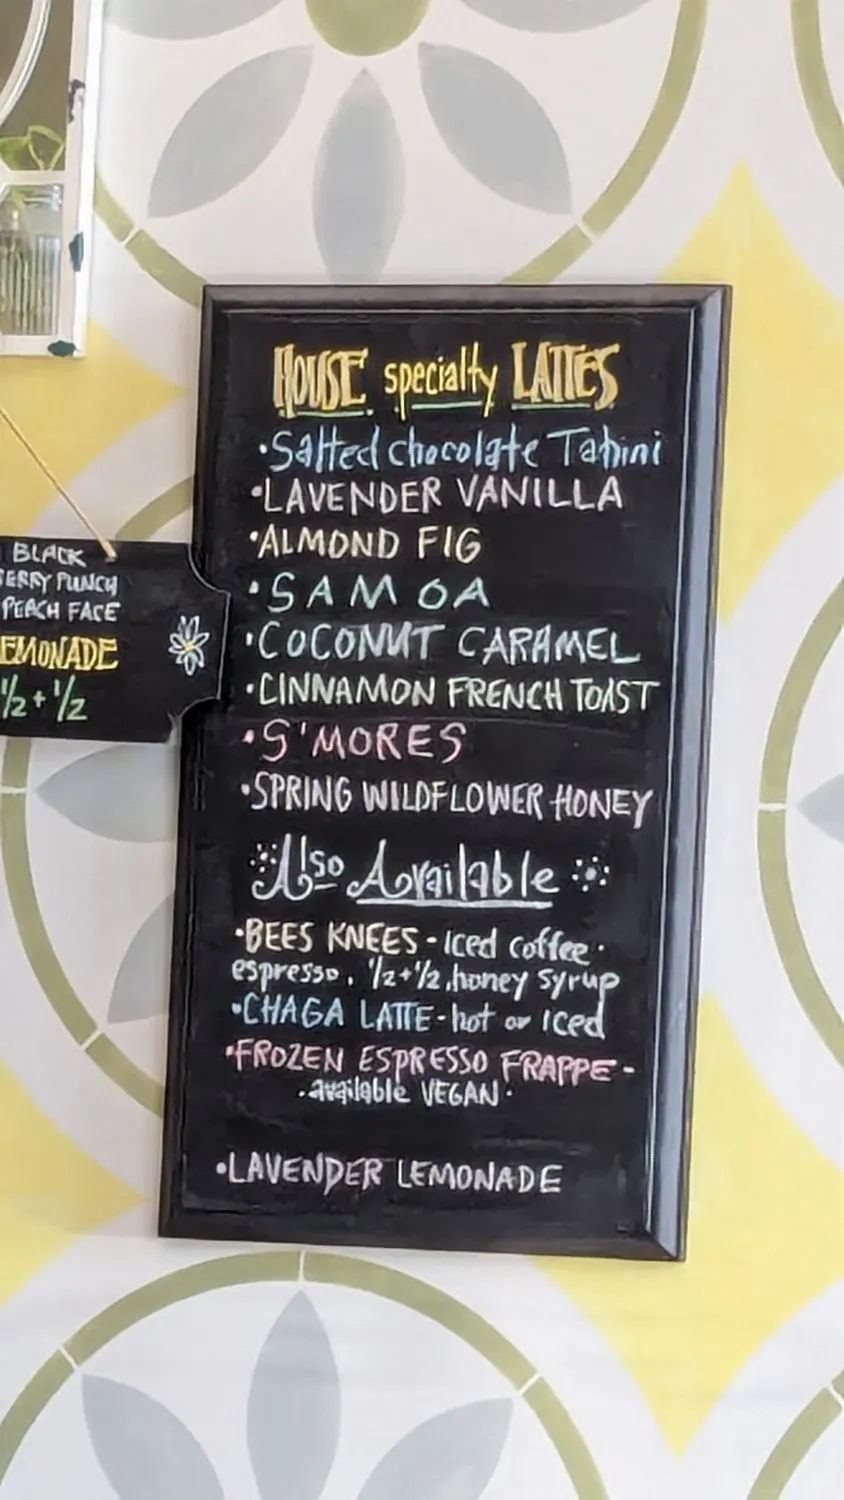 HOUSE specialty LATTES
•Salted chocolate Tahini
•LAVENDER VANILLA
•ALMOND FIG
•SAMOA
•COCONUT CARAMEL
•CINNAMON FRENCH TOAST
•S'MORES
•SPRING WILDFLOWER HONEY
Also Available
•BEES KNEES - Iced coffee •
espresso, 1/2+1/2, honey syrup
•CHAGA LATTE - hot or Iced
•FROZEN ESPRESSO FRAPPE -
•available VEGAN•
•LAVENDER LEMONADE
BLACK
PUNCH
PEACH FACE
EMONADE
1/2+1/2